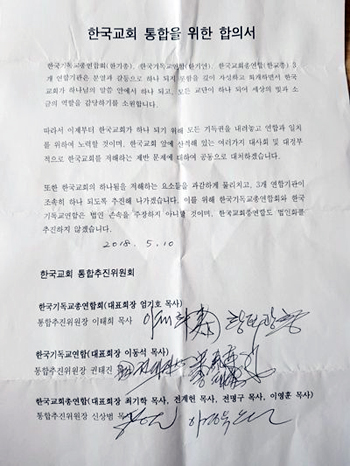 한국교회 통합을 위한 합의서
한국기독교총연합회(한기총), 한국기독교연합(한기연), 한국교회총연합(한교총) 3
개 연합기관은 분열과 갈등으로 하나 되지 못함을 깊이 자성하고 회개하면서 한국
교회가 하나님의 말씀 안에서 하나 되고, 모든 교단이 하나 되어 세상의 빛과 소
금의 역할을 감당하기를 소원합니다.
따라서 이제부터 한국교회가 하나 되기 위해 모든 기득권을 내려놓고 연합과 일치
를 위하여 노력할 것이며, 한국교회 앞에 산적해 있는 여러가지 대사회 및 대정부
적으로 한국교회를 저해하는 제반 문제에 대하여 공동으로 대처하겠습니다.
또한 한국교회의 하나됨을 저해하는 요소들을 과감하게 물리치고, 3개 연합기관이
조속히 하나 되도록 추진해 나가겠습니다. 이를 위해 한국기독교총연합회와 한국
기독교연합은 법인 존속을 주장하지 아니할 것이며, 한국교회총연합도 법인화를
추진하지 않겠습니다.
2018. 5. 10
한국교회 통합추진위원회
한국기독교총연합회(대표회장 엄기호 목사)
통합추진위원장 이태희 목사
한국기독교연합(대표회장 이동석 목사)
통합추진위원장 권태진
한국교회총연합(대표회장 최기학 목사, 전계헌 목사, 전명구 목사, 이영훈 목사)
통합추진위원장 신상범 목